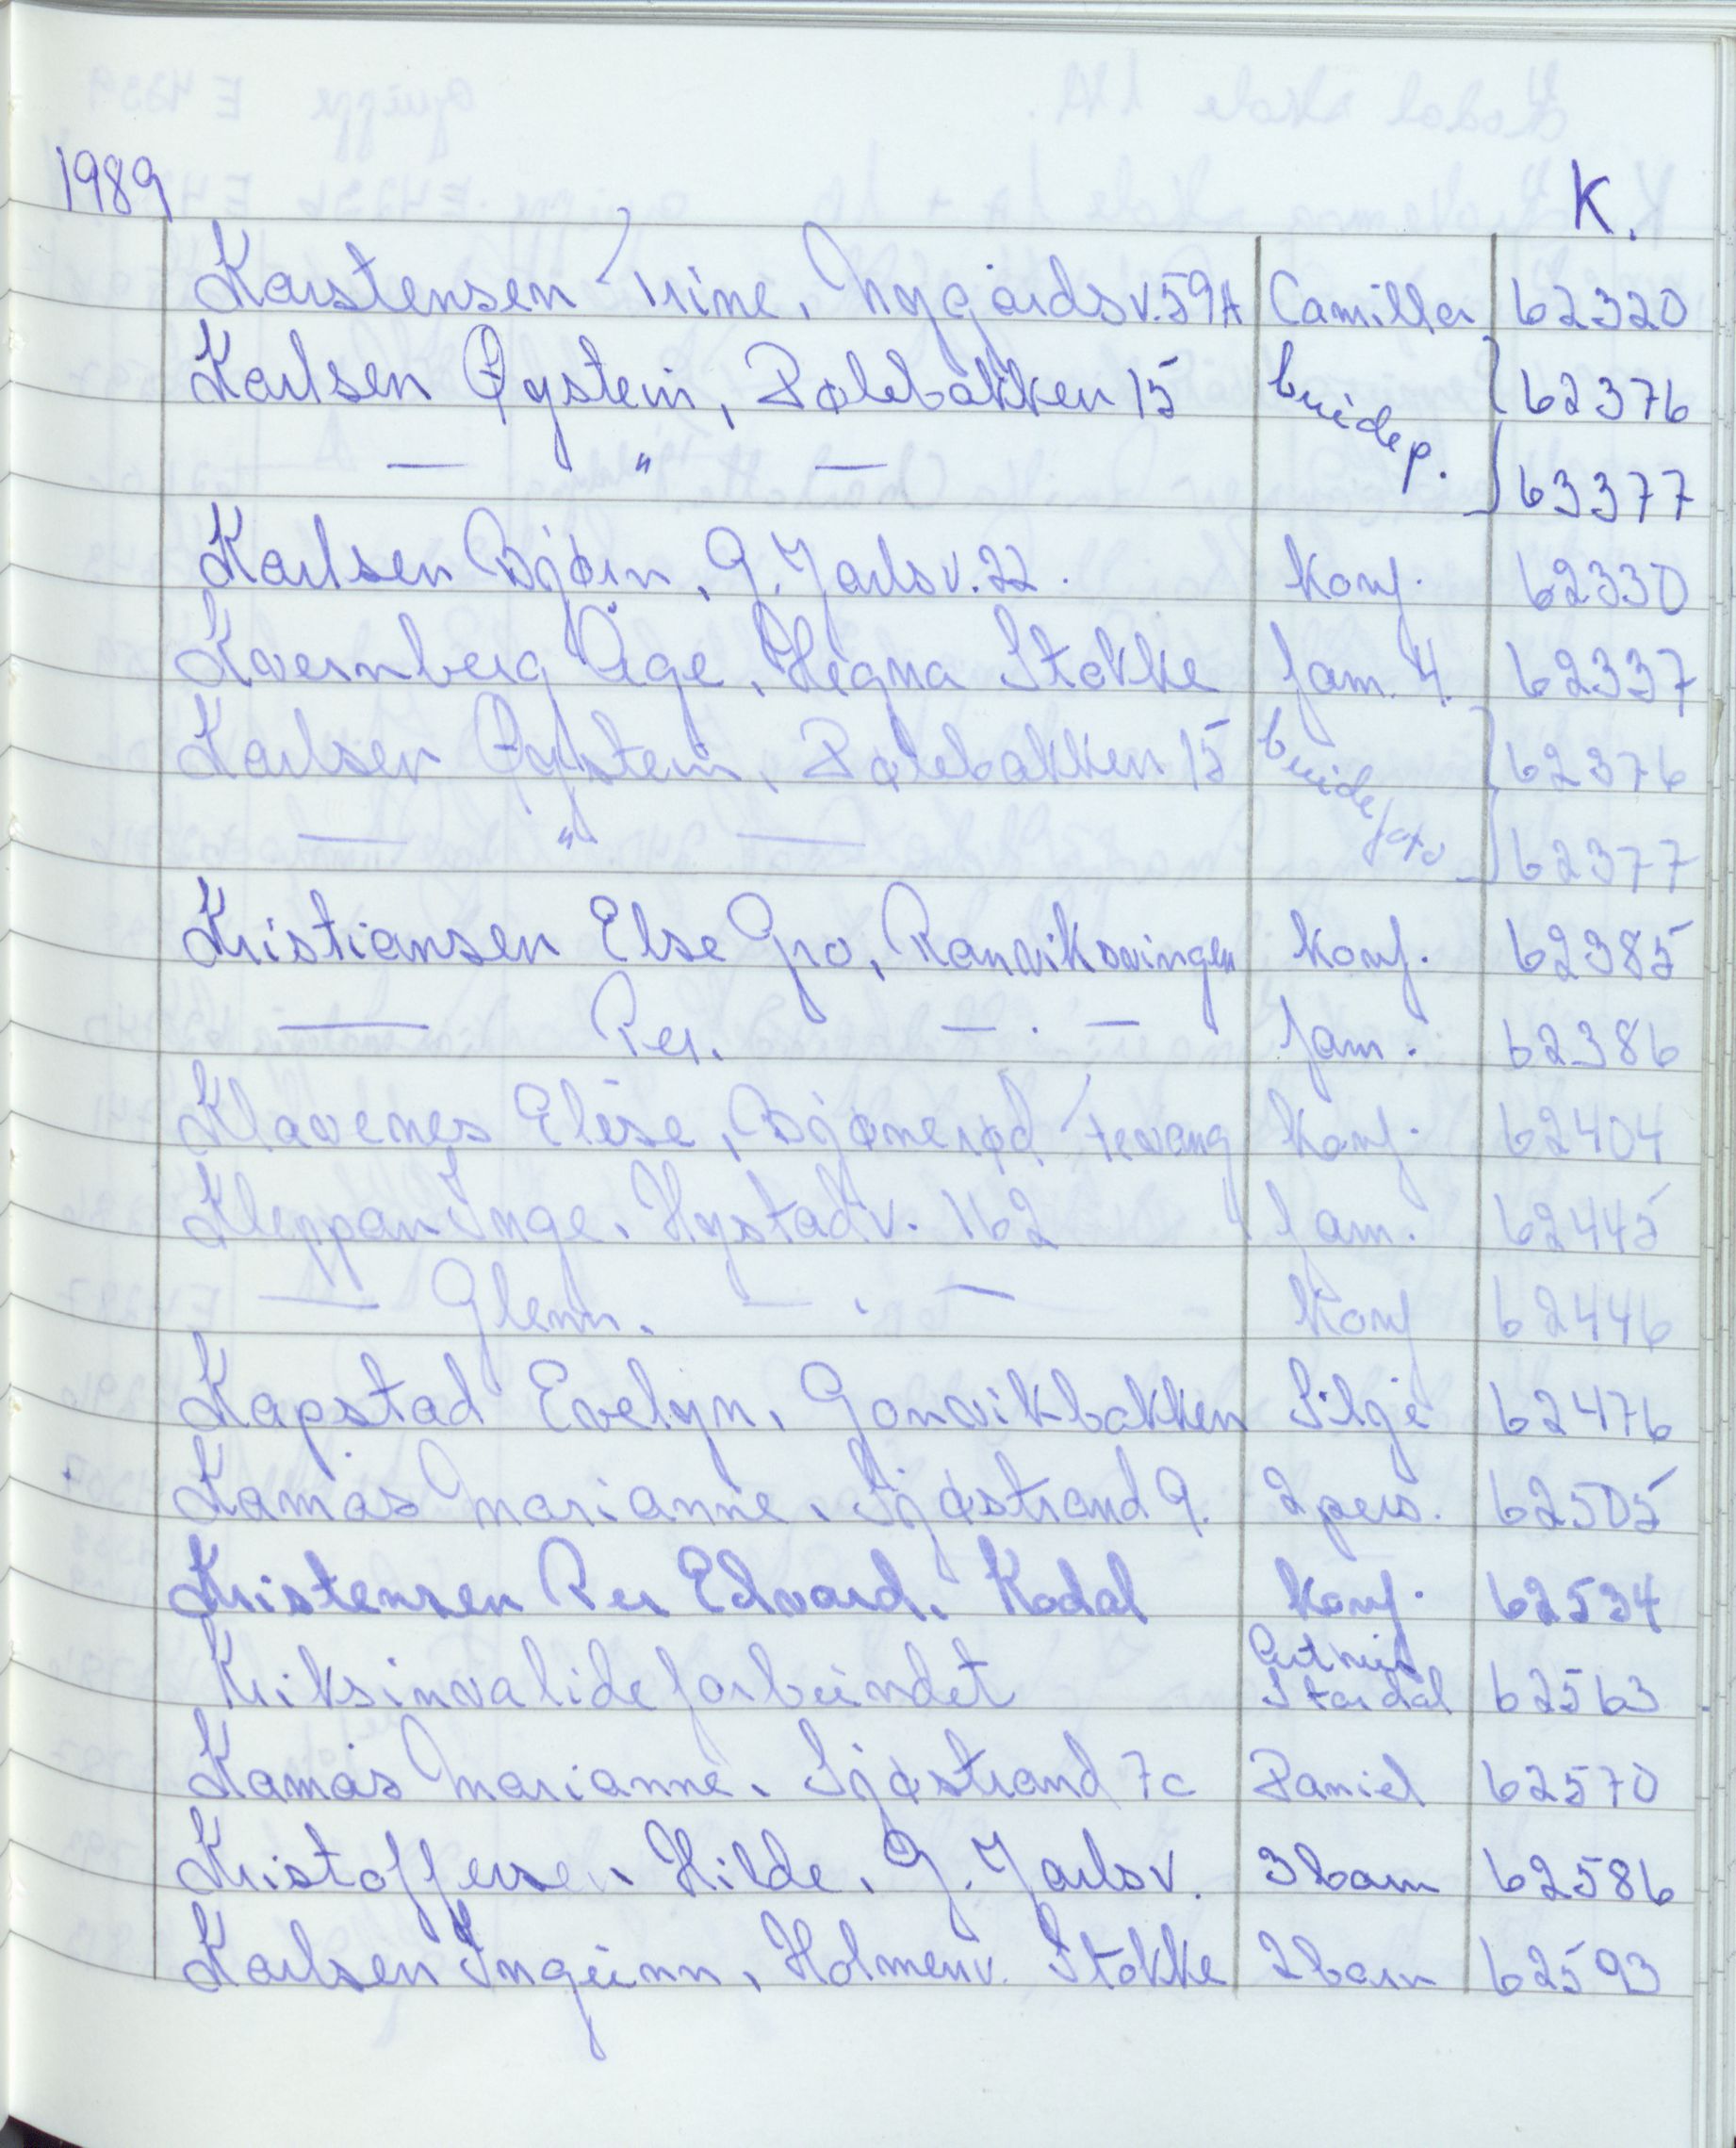 1989 K.
Karstensen Trine, Nygårdsv. 59A Camilla 62320
Karlsen Øystein, Dølebakken 15 brudep. 62376
— " — 63377
Karlsen Bjørn, G. Jarlsv. 22. konf. 62330
Kvernberg Åge, Hegna Stokke fam. 4. 62337
Karlsen Øystein, Dølebakken 15 brude 62376
— " — foto 62377
Kristiansen Else Gro, Ranviksvingen konf. 62385
— Per. — . — fam. 62386
Klavenes Elise, Bjønerød Tevang konf. 62404
Kleppan Inge, Hystadv. 162 fam. 62445
— Glenn. — . — konf 62446
Kapstad Evelyn, Gonvikbakken Silje 62476
Kamås Marianne, Sjøstrand 9. 2 pers. 62505
Kristensen Per Edvard, Kodal konf. 62534
Kriksinvalideforbundet Stardal 62563
Kamås Marianne, Sjøstrand 7c Daniel 62570
Kristoffersen Hilde, G. Jarlsv. 3 barn 62586
Karlsen Ingunn, Holmenv. Stokke 2 barn 62593